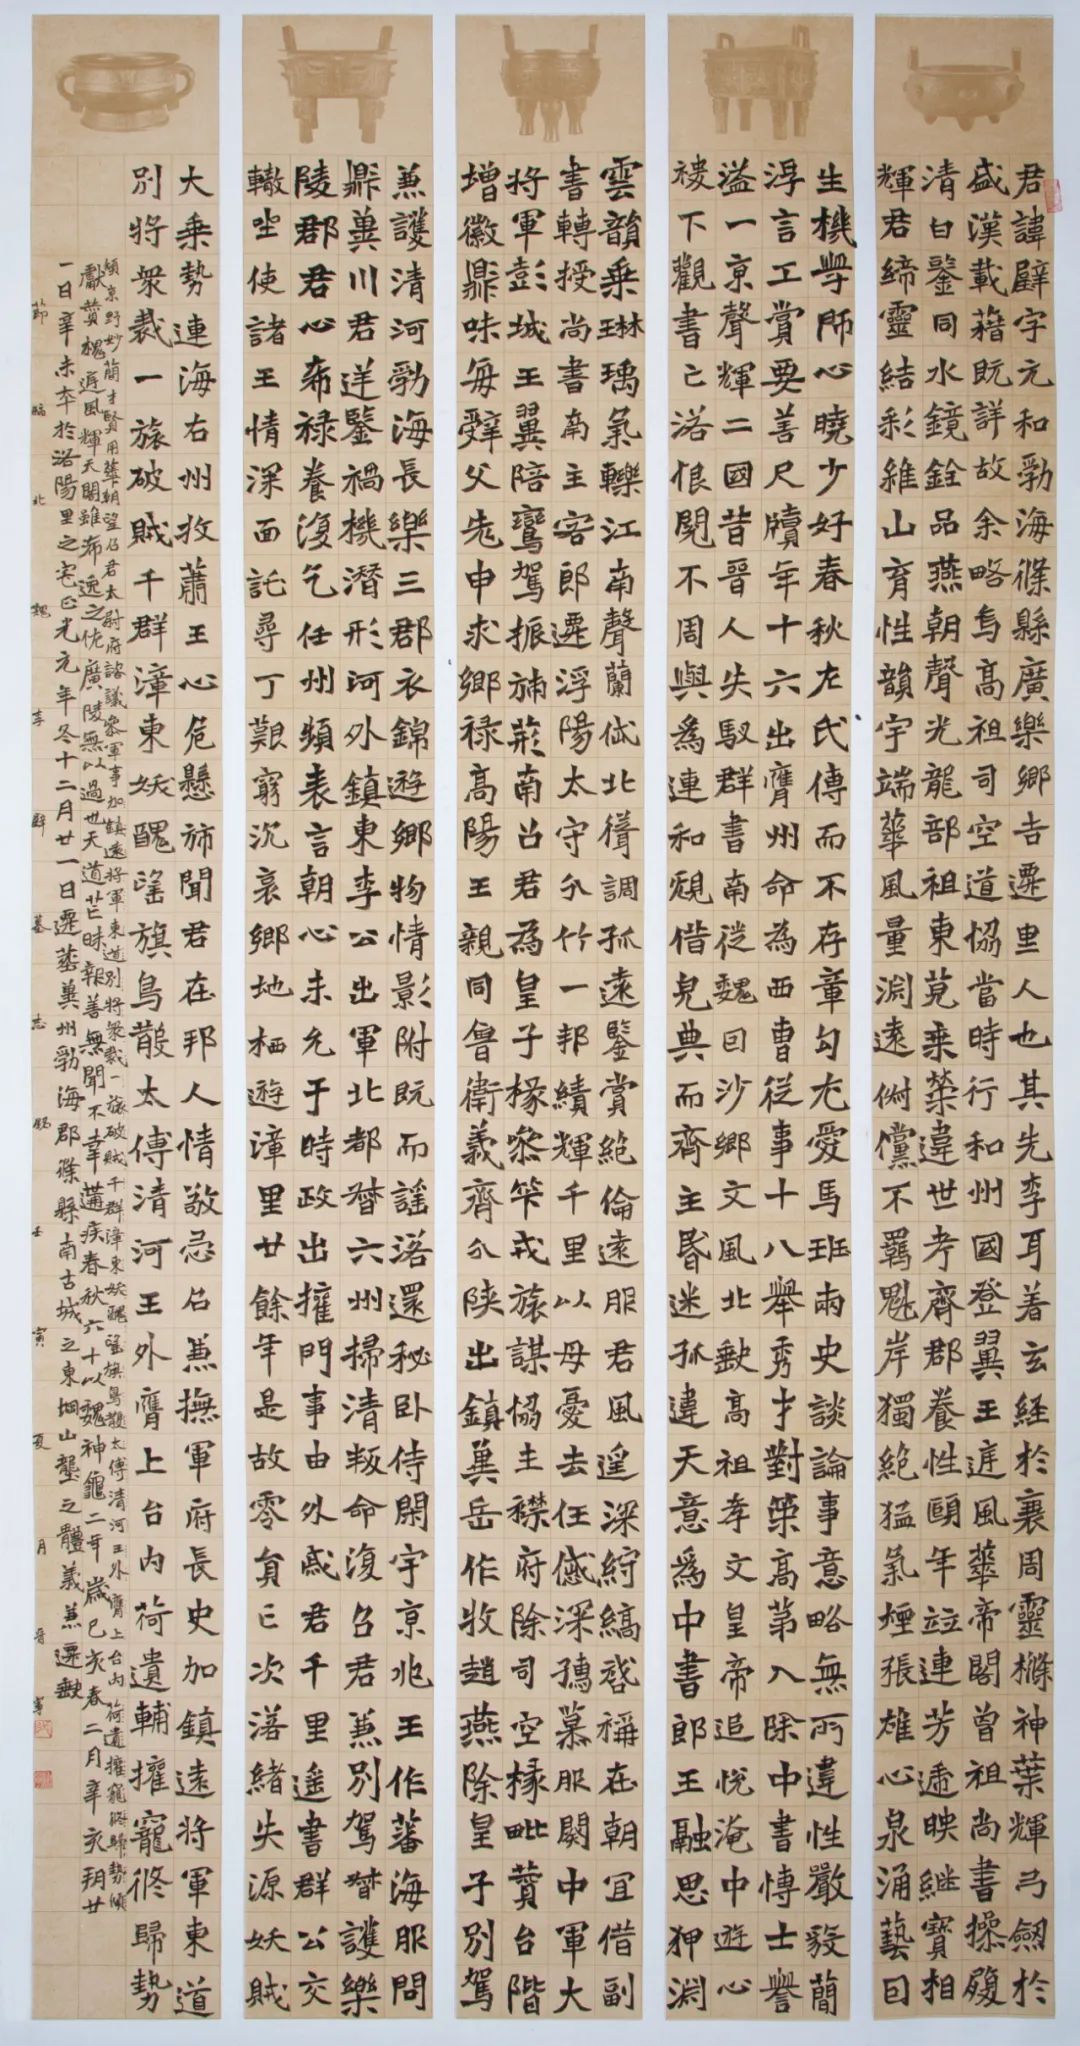 君諱壁字元和勃海條縣廣樂鄉吉遷里人也其先李耳着玄經於衰周靈櫾神葉輝弓劒於
盛漢載藉既詳故余略焉高祖司空道協當時行和州國登翼王庭風華帝閣曾祖尚書操履
清白鑒同水鏡銓品燕朝聲光龍部祖東莞乘榮違世考齊郡養性頤年竝連芳遞映繼寶相
輝君締靈結彩維山育性韻宇端華風量淵遠俶儻不羈魁岸獨絕猛氣煙張雄心泉涌藝因
生機學師心曉少好春秋左氏傳而不存章句尤愛馬班兩史談論事意略無所違性嚴毅簡
浮言工賞要善尺牘年十六出膺州命為西曹從事十八舉秀才對策高第入除中書博士譽
溢一京聲輝二國昔晉人失馭群書南從魏因沙鄉文風北缺高祖孝文皇帝追悅淹中遊心
褄下觀書亡落恨閱不周與為連和規借完典而齊主昏迷孤違天意為中書郎王融思狎淵
雲韻乘琳瑀氣轢江南聲蘭岱北聳調孤遠鑒賞絕倫遠服君風遥深紵縞啓稱在朝宜借副
書轉授尚書南主客郎遷浮陽太守分竹一邦績輝千里以母憂去任慽深孺慕服闋中軍大
將軍彭城王翼陪鸞駕振旆荊南召君為皇子掾參筞戎旅謀協主襟府除司空掾毗贊台階
增徽鼎味每辭父老申求鄉祿高陽王親同魯衛義齊分陝出鎮冀岳作牧趙燕除皇子別駕
兼護清河勃海長樂三郡衣錦遊鄉物情影附既而謡落還秘卧侍閑宇京兆王作蕃海服問
鼎冀川君逆鑒禍機潛形河外鎮東李公出軍北都督六州掃清叛命復召君兼別駕督護樂
陵郡君心希祿養復乞任州頻表言朝心未允于時政出擁門事由外戚君千里遥書群公交
轍坐使諸王情深面託尋丁艱窮沉哀鄉地栖遊漳里廿餘年是故零負亡次落緒失源妖賊
大乘勢連海右州牧蕭王心危懸旆聞君在邦人情敬忌召兼撫軍府長史加鎮遠將軍東道
別將衆裁一旅破賊千群漳東妖醜望旗鳥散太傅清河王外膺上台內荷遺輔擁寵脩歸勢
傾京野妙簡才賢用華朝望乃君太尉府諮議參軍事加鎮遠將軍東道別將衆裁一旅破賊千群漳東妖醜望旗鳥散太傅清河王外膺上台內荷遺擁寵脩歸勢傾
獻贊槐遲風輝天闕雖茀逸之侂廣陵無以過也天道芒昧報善無聞不幸遘疾春秋六十以魏神龜二年歲已亥春二月辛亥朔廿
一日辛未卒於洛陽里之宅正光元年冬十二月廿一日遷葬冀州勃海郡條縣南古城之東堈山壟之體義兼遷缺
節臨北魏李壁墓志銘壬寅夏月晋寧